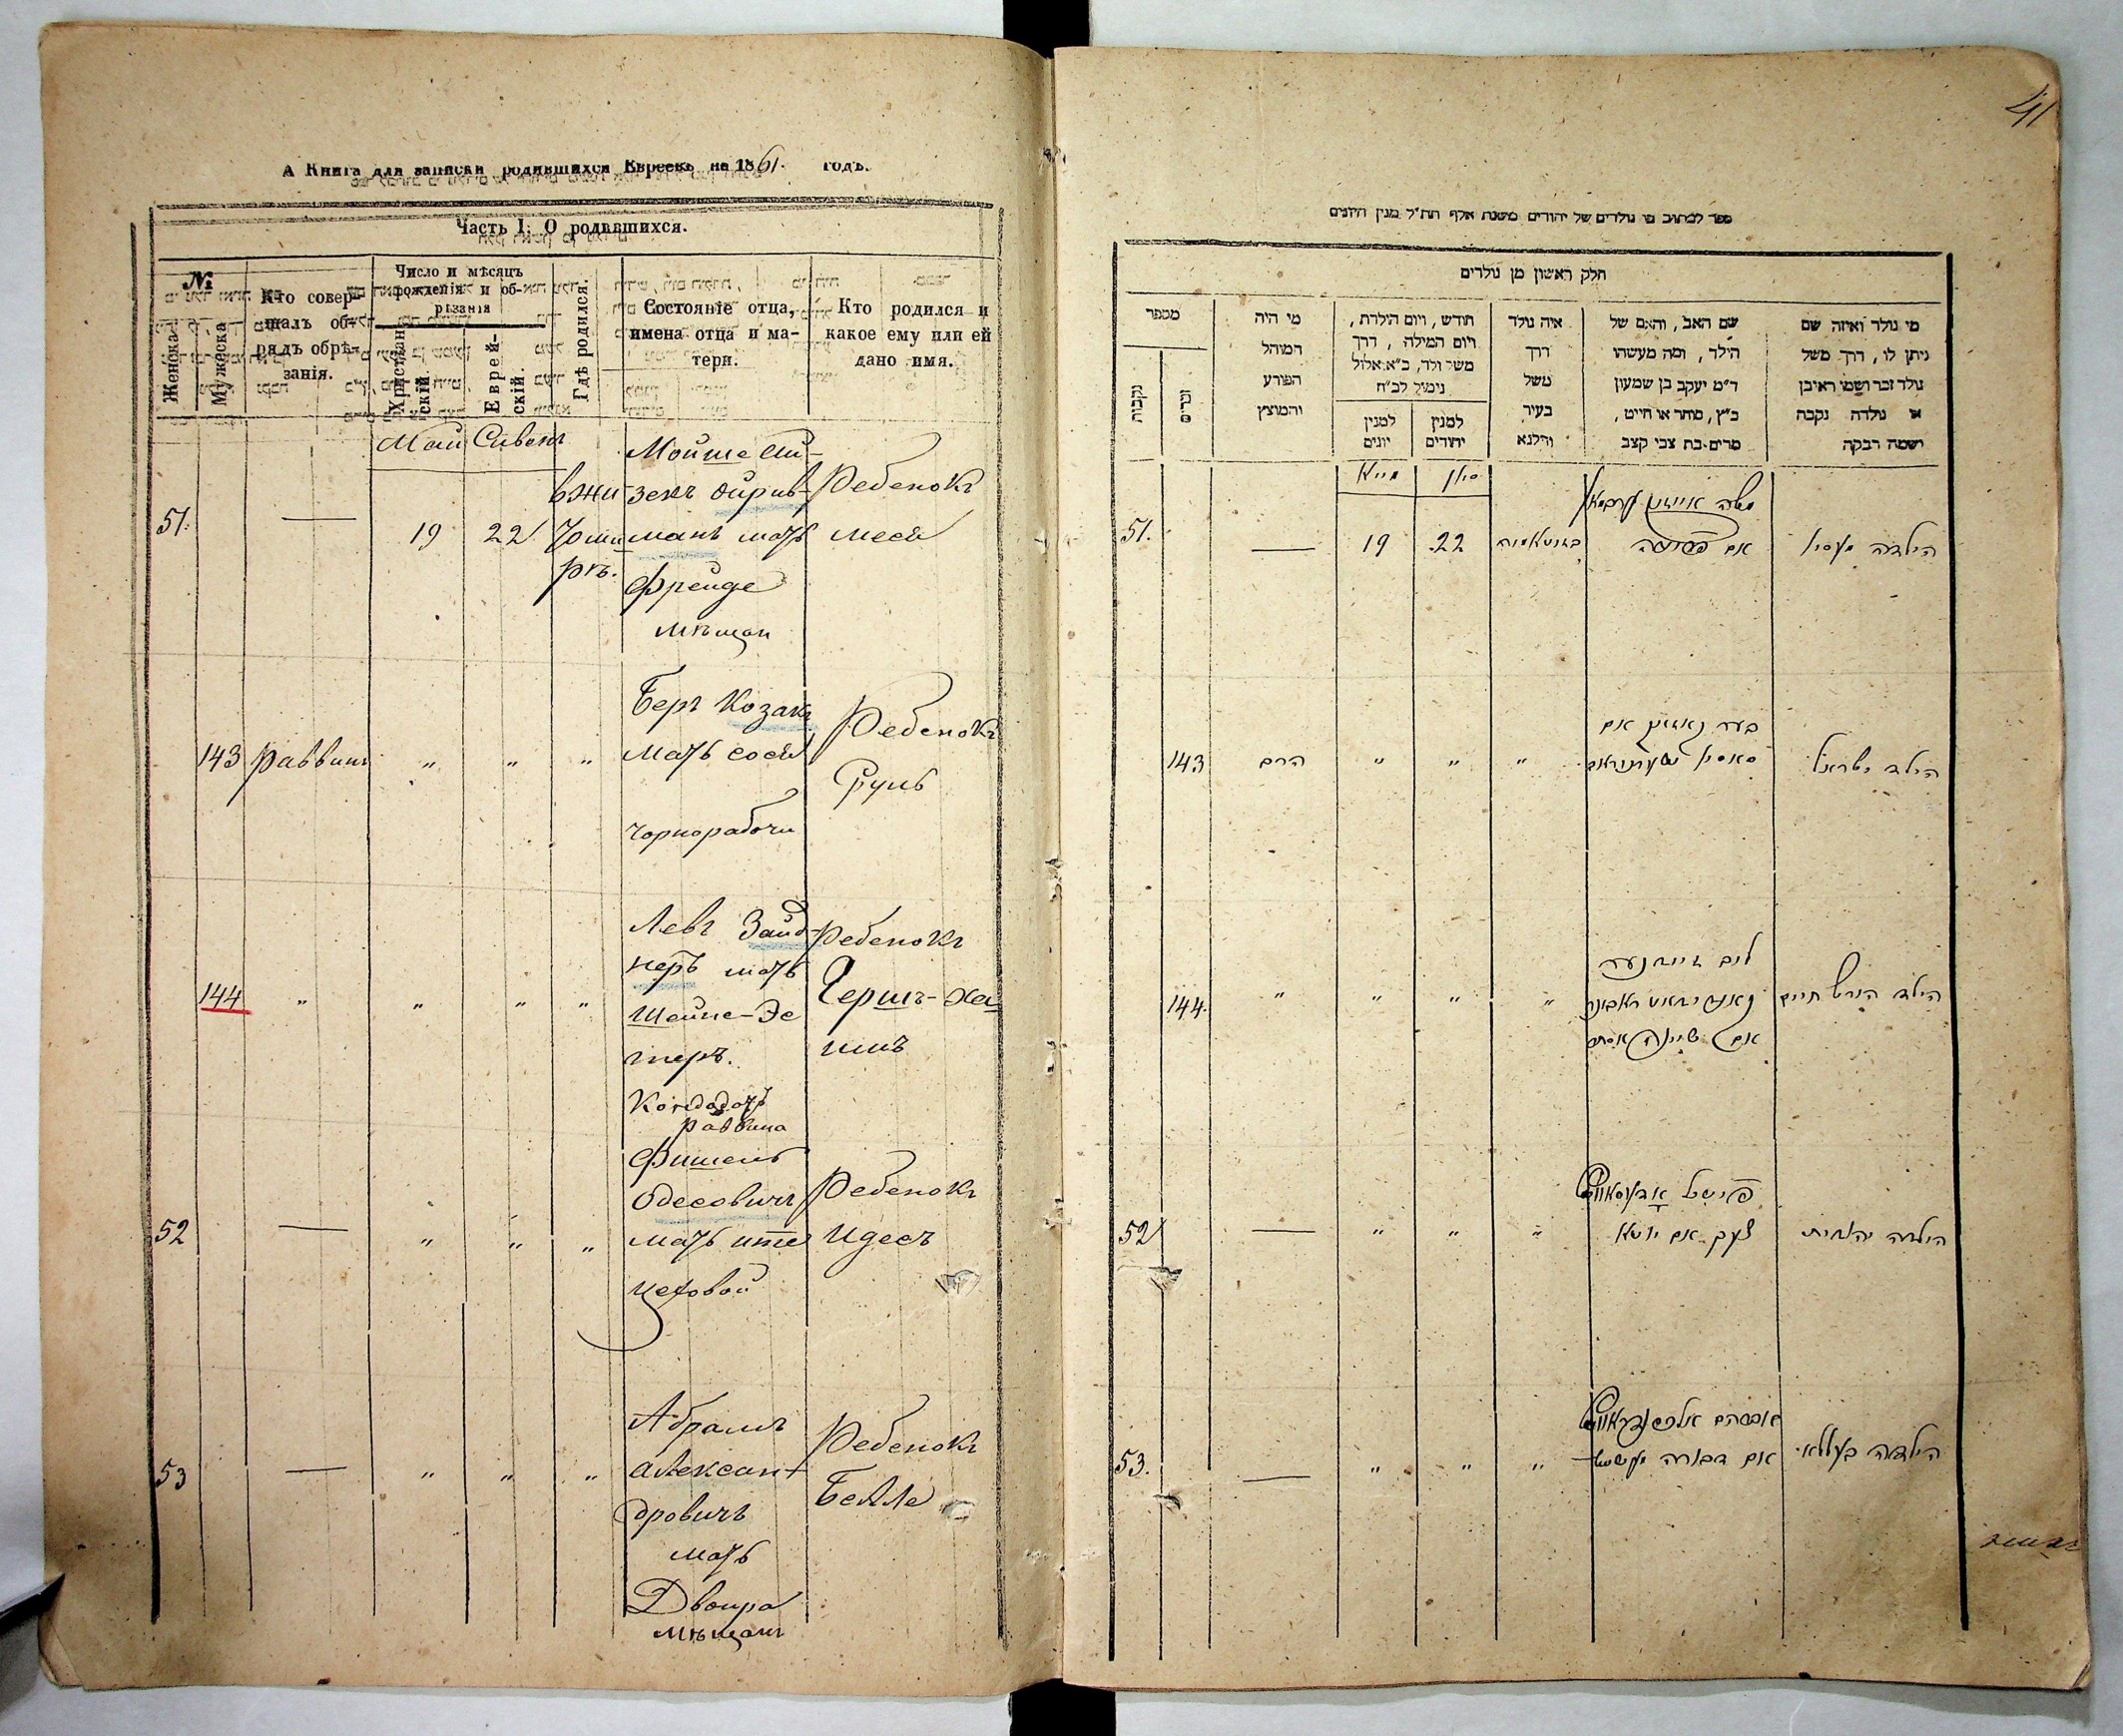 А Книга для записки родившихся Евреевъ на 1861. годъ.
Часть I. О родившихся.
№
Женска
Мужеска
Кто совер-
шалъ об-
рядъ обрѣ-
занія.
Число и мѣсяцъ
рожденія и об-
рѣзанія
Христіан-
скій.
Еврей-
скій.
Гдѣ родился.
Состояніе отца,
имена отца и ма-
тери.
Кто родился и
какое ему или ей
дано имя.
Май Сивонъ
51. — 19 22
вжи
томи
рѣ.
Мойше Ай-
зекъ
манъ мать
Фрейде
мѣщан
Ребенокъ
Меся
143 раввинъ „ „ „
Беръ Козакъ
мать Сося
чорнорабочи
Ребенокъ
Сруль
144 „ „ „ „
Левъ Зайд-
неръ мать
Шейне-Эс
теръ.
Кондодатъ
раввина
Ребенокъ
Гершъ-Ха-
имъ
52 — „ „ „
Фишель
Одесовичъ
мать Ите
цеховой
Ребенокъ
Идесъ
53 — „ „ „
Абрамъ
Алексан-
дровичъ
мать
Двойра
мѣщанъ
Ребенокъ
Бейле
41
ספר לכתוב מי נולדים של יהודים משנת אלף תת״ל מנין היונים
חלק ראשון מן נולדים
מספר
נקבות
זכרים
מי היה
המוהל
הפורע
והמוצץ
חודש, ויום הילדת,
ויום המילה, דרך
משל ולד, ב״א אלול
נימול לכ״ח
למנין
יונים
למנין
יהודים
איה נולד
דרך
משל
בעיר
ווילנא
שם האב, והאם של
הילד, ומה מעשהו
ד״מ יעקב בן שמעון
כ״ץ, סוחר או חייט,
מרים בת צבי קצב
מי נולד ואיזה שם
ניתן לו, דרך משל
נולד זכר ושמו ראובן
או נולדה נקבה
ושמה רבקה
מייא סיון
51. — 19 22
משה אייזיק
אם פריידע
הילדה מעסיא
143 הרב „ „ „
בער קאזאק אם
הילד ישראל
144. „ „ „ „
ליב זיידנער
אם שיינה אסתר
הילד הירש חיים
52 — „ „ „
פישל אדעסאוויטש
אם יוטא
הילדה יהודית
53. — „ „ „
אברהם אלכסנדראוויטש
אם דבורה
הילדה בעלא